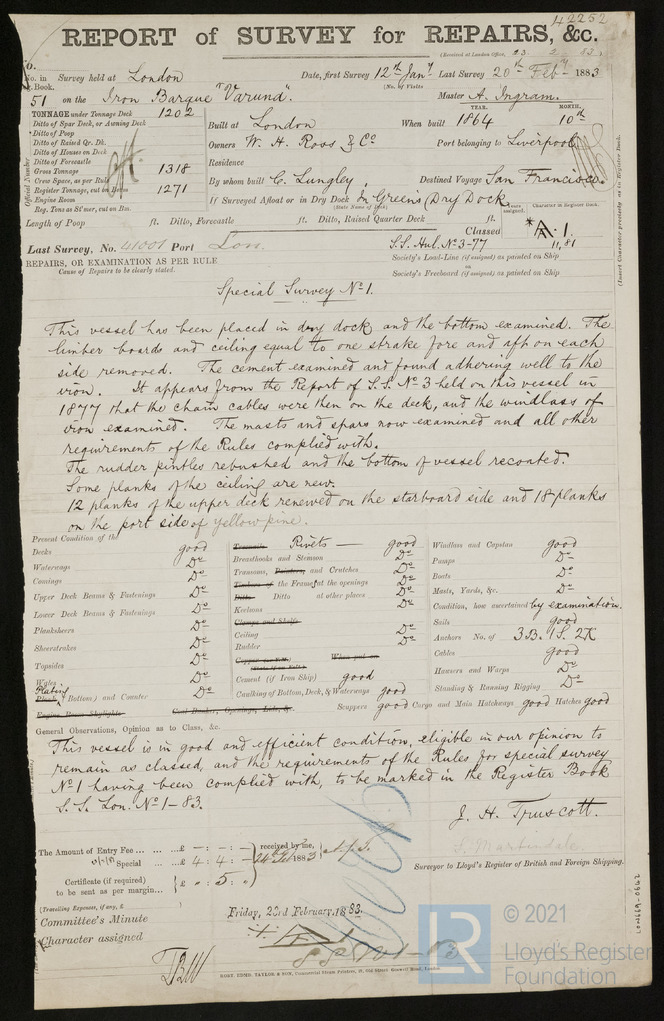 42252
REPORT of SURVEY for REPAIRS, &c.
(Received at London Office, 23. 2. 83.)
No. in Survey held at London Date, first Survey 12th Jany Last Survey 20th Feby 1883
Reg. Book. (No. of Visits
51 on the Iron Barque "Varuna". Master A. Ingram.
TONNAGE under Tonnage Deck 1202
Ditto of Spar Deck, or Awning Deck
Ditto of Poop
Ditto of Raised Qr. Dk.
Ditto of Houses on Deck
Ditto of Forecastle
Gross Tonnage 1318
Crew Space, as per Rule
Register Tonnage, cut on Beam 1271
Engine Room
Reg. Tons as St'mer, cut on Bm.
Official Number
YEAR. MONTH.
Built at London When built 1864 10th
Owners W. H. Ross & Co Port belonging to Liverpool
Residence
By whom built C. Lungley, Destined Voyage San Francisco.
If Surveyed Afloat or in Dry Dock In Greens Dry Dock.
(State Name of Dock)
Length of Poop ft. Ditto, Forecastle ft. Ditto, Raised Quarter Deck ft.
Years assigned. Character in Register Book.
Classed A.1.
11,81
(Insert Character precisely as in Register Book.
Last Survey, No. 41001 Port Lon. S.S. Hul. No 3-77
REPAIRS, OR EXAMINATION AS PER RULE
Cause of Repairs to be clearly stated.
Society's Load-Line (if assigned) as painted on Ship
or
Society's Freeboard (if assigned) as painted on Ship
Special Survey No 1.
This vessel has been placed in dry dock and the bottom examined. The
limber boards and ceiling equal to one strake fore and aft on each
side removed. The cement examined and found adhering well to the
iron. It appears from the Report of S.S. No 3 held on this vessel in
1877 that the chain cables were then on the deck, and the windlass of
iron examined. The masts and spars now examined and all other
requirements of the Rules complied with.
The rudder pintles rebushed and the bottom of vessel recoated.
Some planks of the ceiling are new.
12 planks of the upper deck renewed on the starboard side and 18 planks
on the port side of yellow pine.
Present Condition of the
Decks good
Waterways Do
Comings Do
Upper Deck Beams & Fastenings Do
Lower Deck Beams & Fastenings Do
Planksheers Do
Sheerstrakes Do
Topsides Do
Wales Do
Plating
Plank (Bottom) and Counter Do
Engine Room Skylights Coal Bunker, Openings, Lids, &c.
Treenails Rivets good
Breasthooks and Stemson Do
Transoms, Pointers, and Crutches Do
Timbers of the Frame at the openings Do
Ditto Ditto at other places Do
Keelsons Do
Clamps and Shelfs
Ceiling Do
Rudder Do
Cement (if Iron Ship) good
Caulking of Bottom, Deck, & Waterways good
Scuppers good Cargo and Main Hatchways good Hatches good
Windlass and Capstan good
Pumps Do
Boats Do
Masts, Yards, &c. Do
Condition, how ascertained by examination.
Sails good
Anchors No. of 3B. 1S. 2K
Cables good
Hawsers and Warps Do
Standing & Running Rigging Do
General Observations, Opinion as to Class, &c.
This vessel is in good and efficient condition, eligible in our opinion to
remain as classed, and the requirements of the Rules for special survey
No 1 having been complied with, to be marked in the Register Book
S.S. Lon. No 1-83.
J. H. Truscott.
S. Martindale
Surveyor to Lloyd's Register of British and Foreign Shipping.
The Amount of Entry Fee ... £ - : - : - received by me,
Special ... £ 4 : 4 : - 24th Feb 1883
Certificate (if required) £ - 5 : -
to be sent as per margin...
(Travelling Expenses, if any, £
Committee's Minute Friday, 23rd February, 1883.
Character assigned A1
S S No 1-83
ROBT. EDMD. TAYLOR & SON, Commercial Steam Printers, 19, Old Street, Goswell Road, London
LON669-0662
LR
© 2021
Lloyd's Register
Foundation